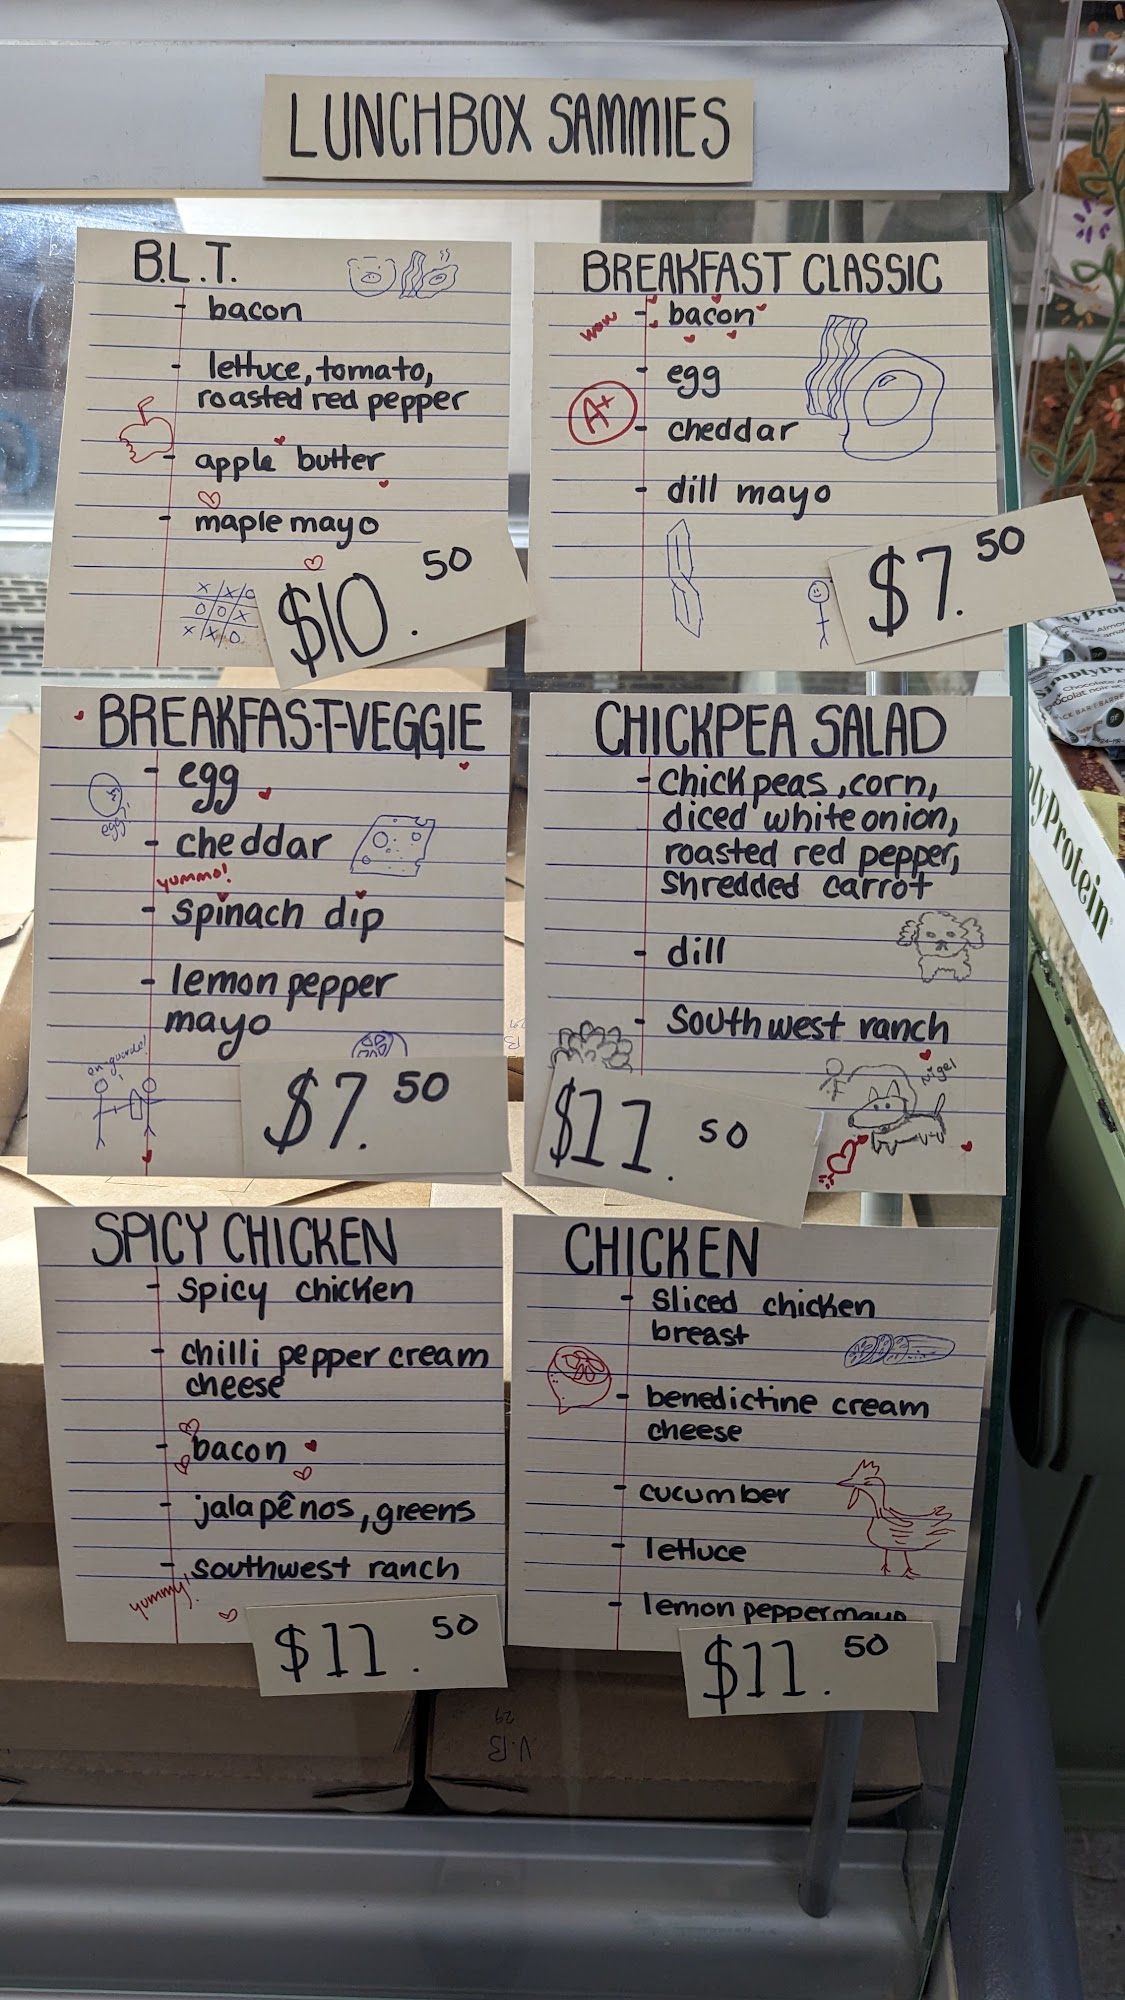 LUNCHBOX SAMMIES
B.L.T.
- bacon
- lettuce, tomato,
roasted red pepper
- apple butter
- maple mayo
x x o
o o x
x x o
$10.50
BREAKFAST CLASSIC
wow
- bacon
- egg
A+
- cheddar
- dill mayo
$7.50
BREAKFAST-VEGGIE
- egg
egg!
- cheddar
yummo!
- spinach dip
- lemon pepper
mayo
on-guarde!
$7.50
CHICKPEA SALAD
- chickpeas, corn,
diced white onion,
roasted red pepper,
shredded carrot
- dill
- southwest ranch
Nigel
$11.50
SPICY CHICKEN
- spicy chicken
- chilli pepper cream
cheese
- bacon
- jalapênos, greens
- southwest ranch
yummy!
$11.50
CHICKEN
- sliced chicken
breast
- benedictine cream
cheese
- cucumber
- lettuce
- lemon pepper mayo
$11.50
V.B
29
SimplyProtein
Chocolate
chocolat noir et
plyProtein